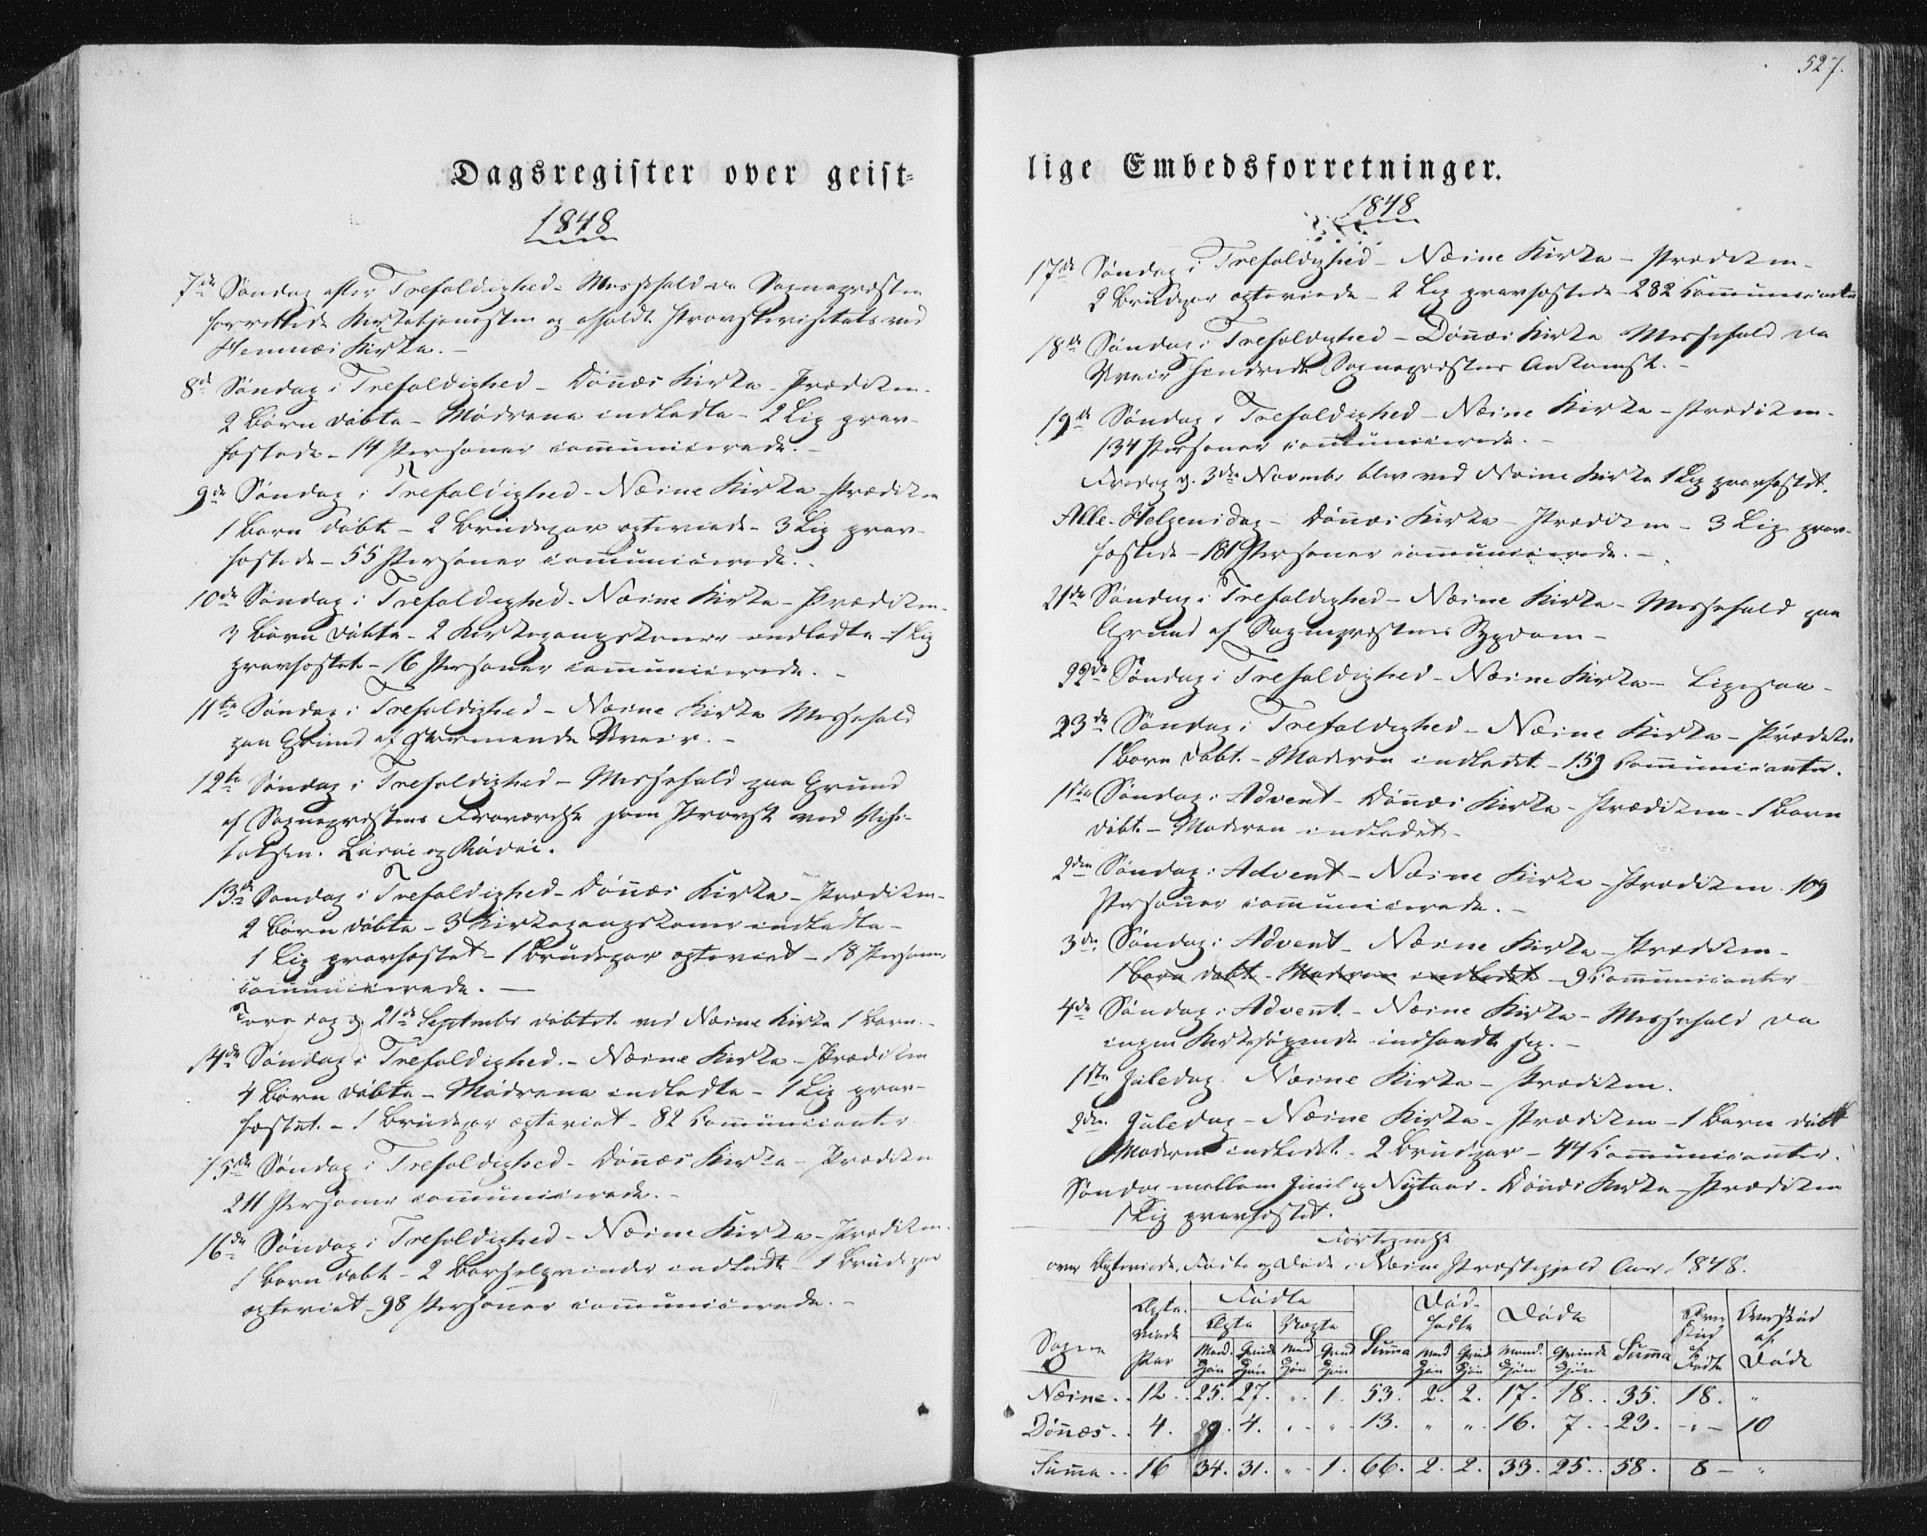 527.
Dagsregister over geist-
1848
7de Søndag efter Trefoldighed - Messefald da Sognepræsten
forrettede Kirketjenesten og afholdt Provstevisitats ved
Hemnæs Kirke. -
8de Søndag i Trefoldighed - Dönnæs Kirke - Prædiken -
2 Børn døbte - Mødrene indledte - 2 Lig grav-
fæstede - 14 Personer communicerede. -
9de Søndag i Trefoldighed - Næsne Kirke - Prædiken
1 Barn døbt - 2 Brudepar egteviede - 3 Lig grav-
fæstede - 55 Personer communicerede. -
10de Søndag i Trefoldighed - Næsne Kirke - Prædiken -
3 Børn døbte - 2 Kirkegangskoner indledte - 1 Lig
gravfæstet - 16 Personer communicerede. -
11te Søndag i Trefoldighed - Næsne Kirke Messefald
paa Grund af Uveir. -
12te Søndag i Trefoldighed - Messefald paa Grund
af Sognepræstens Fraværelse som Provst ved Visi-
tatsen. Lurøe og Rødøe.
13de Søndag i Trefoldighed - Dönnæs Kirke - Prædiken -
2 Børn døbte - 3 Kirkegangskoner indledte -
1 Lig gravfæstet - 1 Brudepar egteviet - 18 Personer
communicerede. -
Torsdag d. 21de Septembr døbtes ved Næsne Kirke 1 Barn. -
14de Søndag i Trefoldighed. - Næsne Kirke - Prædiken
4 Børn døbte - Mødrene indledte - 1 Lig grav-
fæstet. - 1 Brudepar egteviet - 82 Communicanter
15de Søndag i Trefoldighed - Dönnæs Kirke - Prædiken
211 Personer communicerede. -
16de Søndag i Trefoldighed - Næsne Kirke - Prædiken -
1 Barn døbt - 2 Barselqvinder indledte - 1 Brudepar
egteviet - 98 Personer communicerede. -
lige Embedsforretninger.
1848
17de Søndag i Trefoldighed - Næsne Kirke - Prædiken -
2 Brudepar egteviede - 2 Lig gravfæstede - 282 Communicanter
18de Søndag i Trefoldighed - Dönnæs Kirke Messefald da
Uveir hindrede Sognepræstens Ankomst. -
19de Søndag i Trefoldighed - Næsne Kirke - Prædiken -
134 Personer communicerede. -
Fredag d. 3die Novembr blev ved Næsne Kirke 1 Lig gravfæstet.
Alle Helgensdag - Dönnæs Kirke - Prædiken - 3 Lig grav-
fæstede - 181 Personer communicerede. -
21de Søndag i Trefoldighed - Næsne Kirke - Messefald paa
Grund af Sognepræstens Sygdom -
22de Søndag i Trefoldighed - Næsne Kirke - Ligesaa -
23de Søndag i Trefoldighed - Næsne Kirke - Prædiken
1 Barn døbt. - Moderen indledet - 159 Communicanter.
1ste Søndag i Advent - Dönnæs Kirke - Prædiken - 1 Barn
døbt - Moderen indledet -
2den Søndag i Advent - Næsne Kirke - Prædiken - 109
Personer communicerede. -
3die Søndag i Advent - Næsne Kirke - Prædiken -
1 Barn døbt - Moderen indledet - 9 Communicanter
4de Søndag i Advent - Næsne Kirke - Messefald da
ingen Kirkesøgende indfandt sig. -
1ste Juledag. Næsne Kirke - Prædiken.
2den Juledag - Næsne Kirke - Prædiken - 1 Barn døbt
Moderen indledet - 2 Brudepar - 44 Communicanter.
Søndag mellem Juul og Nytaar - Dönnæs Kirke - Prædiken
1 Lig gravfæstet.
Fortegnelse
over Egteviede, Fødte og Døde i Næsne Præstegjeld Aar 1848.
Sogne Egteviede Par Fødte Egte Uegte Mandkjøn Qvindekjøn Mandkjøn Qvindekjøn Summa Dødfødte Mandkjøn Qvindekjøn Døde Mandkjøn Qvindekjøn Summa Overskud af Fødte Overskud af Døde
Næsne. 12. 25. 27. " 1. 53. 2. 2. 17. 18. 35. 18. "
Dönnæs. 4. 9. 4. " " 13. " " 16. 7. 23. " 10
Summa. 16 34. 31. " 1. 66. 2. 2. 33. 25. 58. 8 "